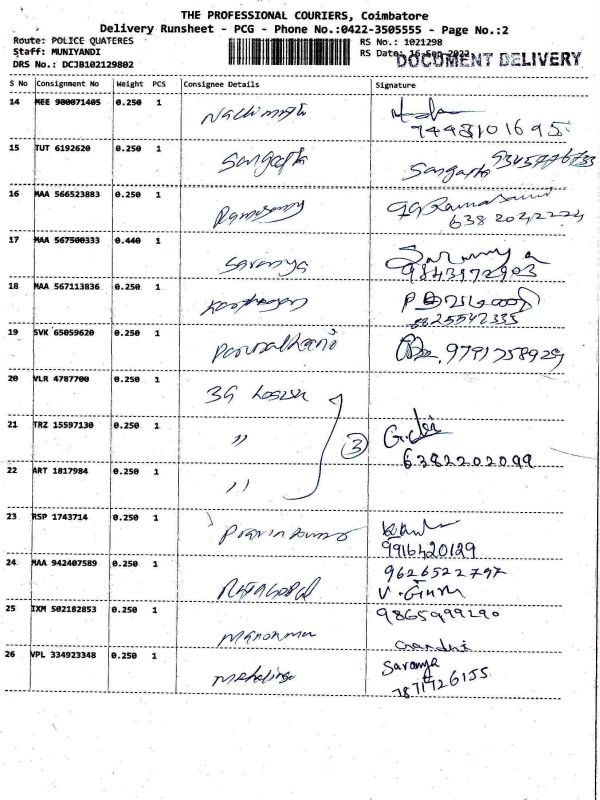 THE PROFESSIONAL COURIERS, Coimbatore
Delivery Runsheet - PCG - Phone No.:0422-3505555 - Page No.:2
Route: POLICE QUATERES RS No.: 1021298
Staff: MUNIYANDI RS Date: 16 Sep 2022
DOCUMENT DELIVERY
DRS No.: DCJB102129802
S No Consignment No Weight PCS Consignee Details Signature
14 MEE 900071405 0.250 1
7448101695
15 TUT 6192620 0.250 1 Sangatta Sangatta 9345776733
16 MAA 566523883 0.250 1 Ramasamy
17 MAA 567500333 0.440 1 Saranya Saranya
9843972903
18 MAA 567113836 0.250 1
19 SVK 65059620 0.250 1 9791758929
20 VLR 4787700 0.250 1
21 TRZ 15597130 0.250 1 " 3
6382202099
22 ART 1817984 0.250 1 "
23 RSP 1743714 0.250 1
9916420129
24 MAA 942407589 0.250 1 9626522797
25 IXM 502182853 0.250 1 9865999290
26 VPL 334923348 0.250 1 Saranya
7871726155